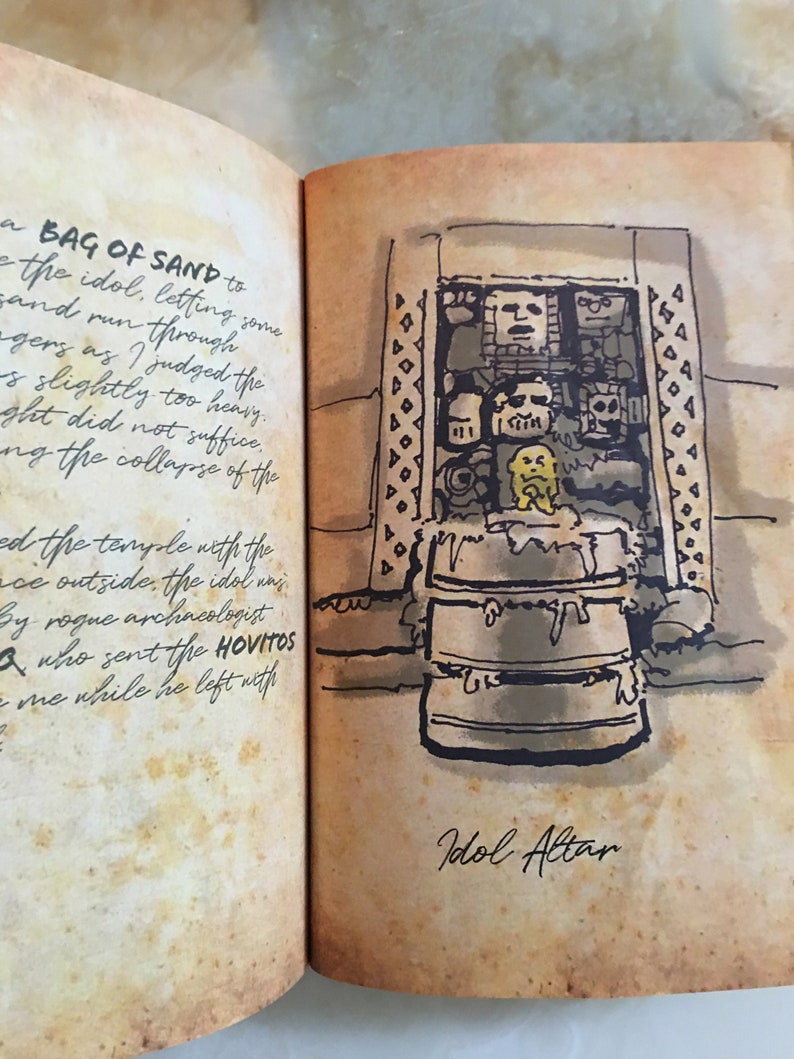 a BAG OF SAND to
the idol, letting some
sand run through
as I judged the
slightly too heavy.
did not suffice,
the collapse of the
the temple with the
outside, the idol was
by rogue archaeologist
who sent the HOVITOS
me while he left with
Idol Altar